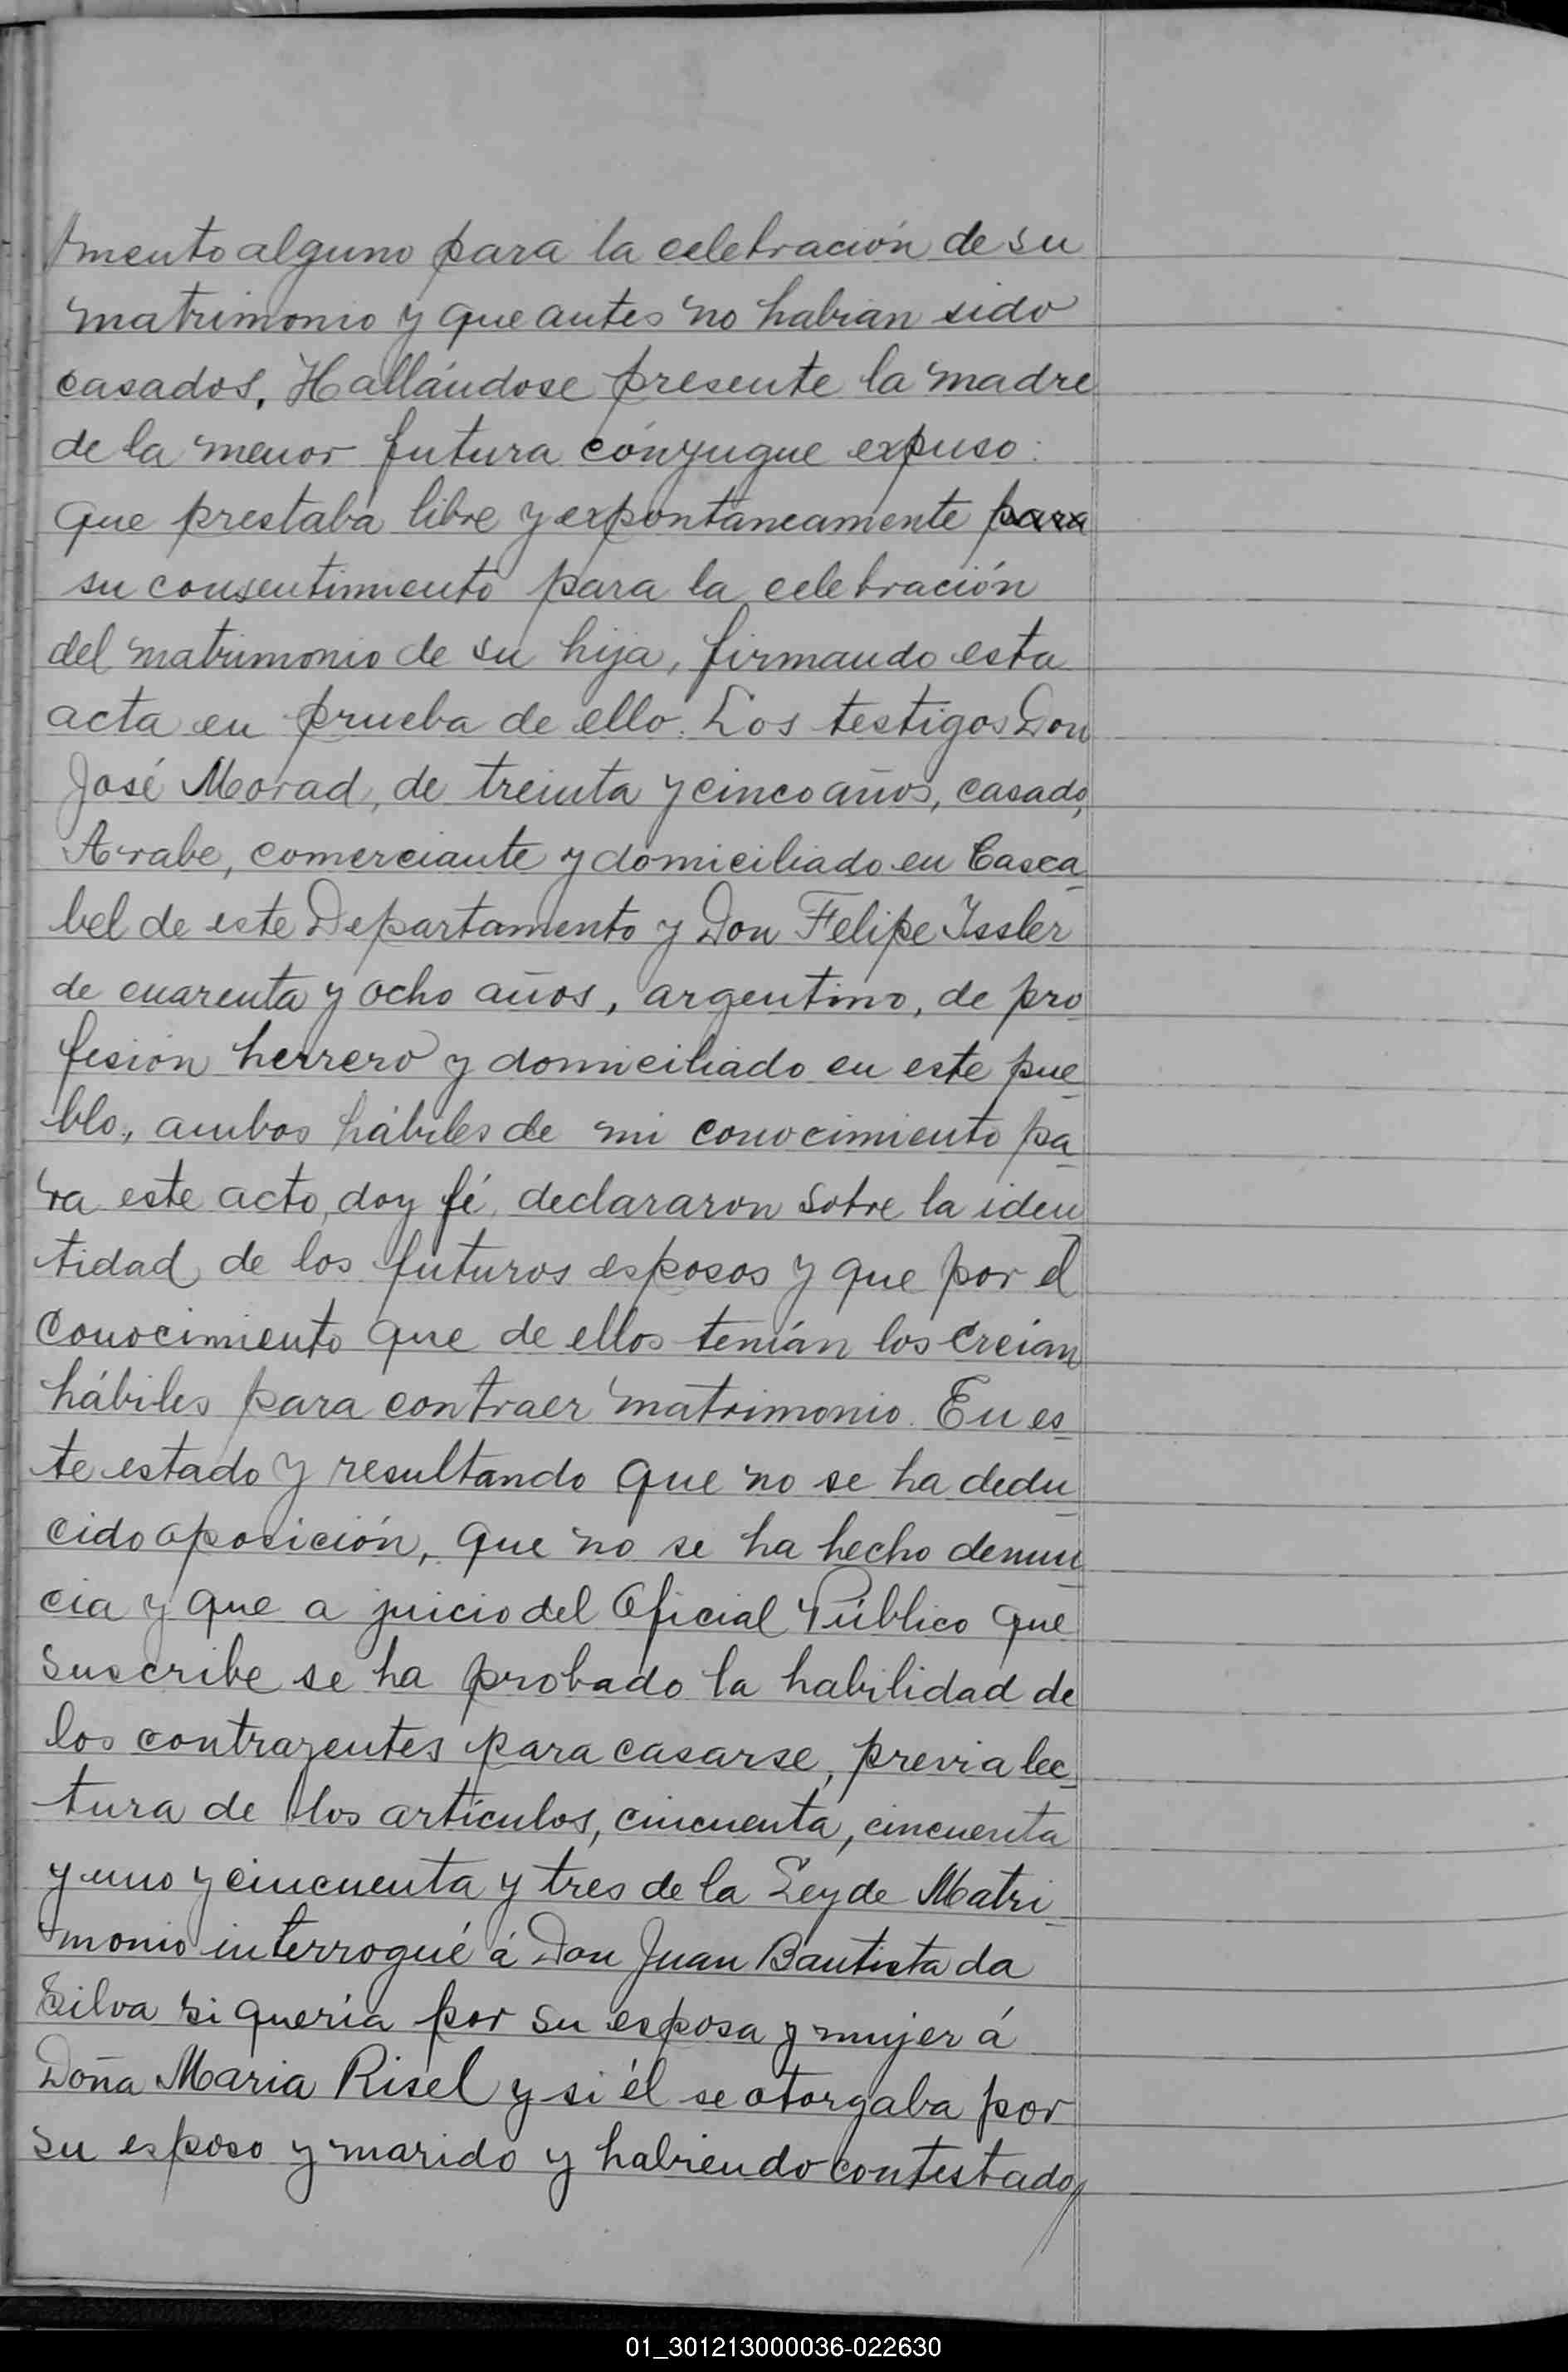 mento alguno para la celebración de su
matrimonio y que antes no habían sido
casados. Hallándose presente la madre
de la menor futura cónyugue expuso:
que prestaba libre y expontáneamente para
su consentimiento para la celebración
del matrimonio de su hija, firmando esta
acta en prueba de ello. Los testigos Don
José Morad, de treinta y cinco años, casado,
Arabe, comerciante y domiciliado en Casca-
bel de este Departamento y Don Felipe Issler
de cuarenta y ocho años, argentino, de pro-
fesión herrero y domiciliado en este pue-
blo, ambos hábiles de mi conocimiento pa-
ra este acto, doy fé, declararon sobre la iden-
tidad de los futuros esposos y que por el
conocimiento que de ellos tenían los creían
hábiles para contraer matrimonio. En es-
te estado y resultando que no se ha dedu-
cido oposición, que no se ha hecho denun-
cia y que a juicio del Oficial Público que
suscribe se ha probado la habilidad de
los contrayentes para casarse, previa lec-
tura de los artículos, cincuenta, cincuenta
y uno y cincuenta y tres de la Ley de Matri-
monio interrogué á Don Juan Bautista da
Silva si quería por su esposa y mujer á
Doña Maria Risel y si él se otorgaba por
su esposo y marido y habiendo contestado
01_301213000036-022630